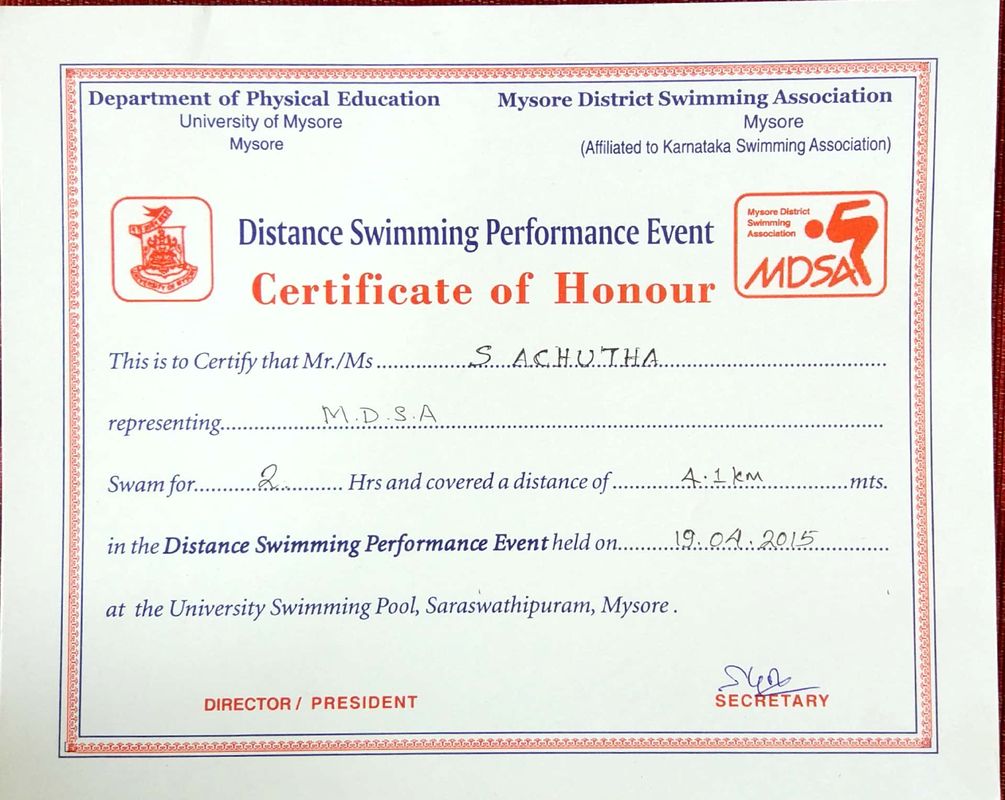 Department of Physical Education
University of Mysore
Mysore
Mysore District Swimming Association
Mysore
(Affiliated to Karnataka Swimming Association)
UNIVERSITY OF MYSORE
Distance Swimming Performance Event
Certificate of Honour
Mysore District
Swimming
Association
MDSA
This is to Certify that Mr./Ms S ACHUTHA
representing M.D.S.A
Swam for 2 Hrs and covered a distance of 4.1 km mts.
in the Distance Swimming Performance Event held on 19.04.2015
at the University Swimming Pool, Saraswathipuram, Mysore .
DIRECTOR / PRESIDENT
SECRETARY